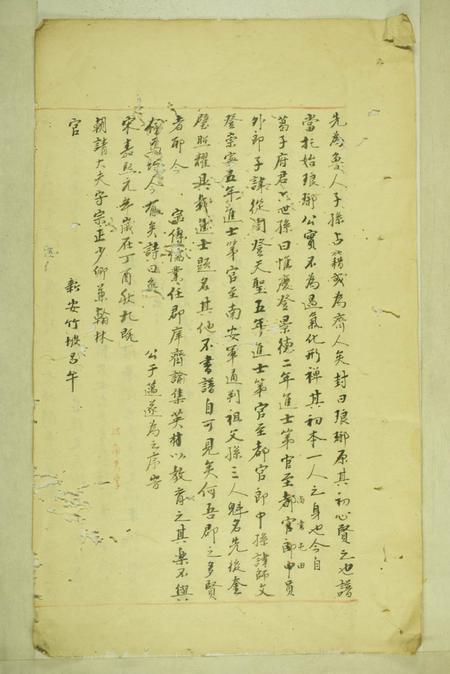 先為魯人子孫占籍或為齊人矣封曰琅琊原其初心賢之也譜
當托始琅琊公實不為過氣化形禪其初本一人之身也今自
萬子府君六世孫曰惟慶登景德二年進士第官至都官郎中員
尚書屯田
外郎子諱從周登天聖五年進士第官至都官郎中孫諱師文
登崇寧五年進士第官至南安軍通判祖父孫三人魁名先後奎
壁照耀具載進士題名其他不書譜自可見矣何吾郡之多賢
者耶今 宗傳儒業任郡庠齊諭集英材以教育之其樂不與
矣詩曰 公于邁遂為之序
宋嘉熙元年歲在丁酉秋九既
朝請大夫守宗正少卿兼翰林
官 新安竹坡呂午